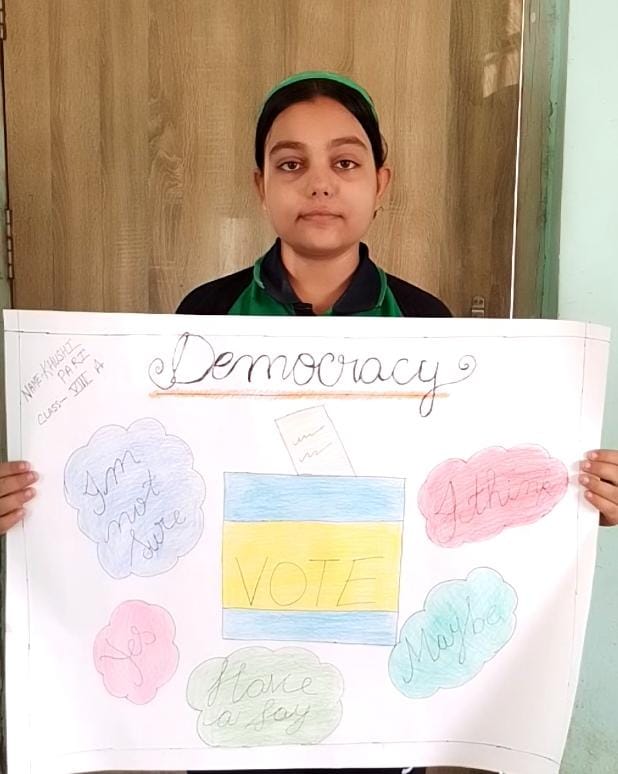 NAME-KHUSHI
PARI
CLASS- VIII A
Democracy
I'm
not
sure
VOTE
I think
Yes
Maybe
Have
a say